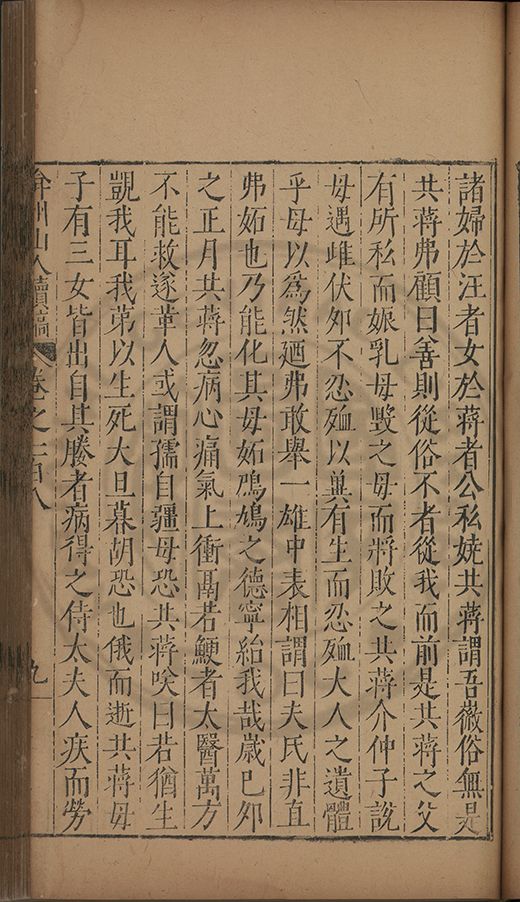 諸婦於汪者女於蔣者公私嬈共蔣謂吾徽俗無是
共蔣弗顧曰善則從俗不者從我而前是共蔣之父
有所私而娠乳母毉之母而將敗之共蔣介仲子說
母遇雌伏夘不忍殈以冀有生而忍殈大人之遺體
乎母以爲然廼弗敢舉一雄中表相謂曰夫氏非直
弗妬也乃能化其母妬鳲鳩之德寧紿我哉歲巳夘
之正月共蔣忽病心痛氣上衝鬲若鯁者太醫萬方
不能救遂革人或謂孺自彊母恐共蔣唉曰若猶生
覬我耳我第以生死大旦暮胡恐也俄而逝共蔣毋
子有三女皆出自其媵者病得之侍太夫人疾而勞
弇州山人續稿 卷之一百八 九